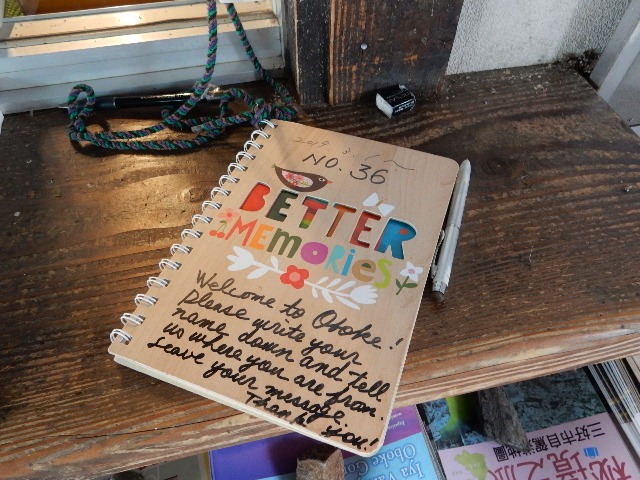 2019
NO. 36
BETTER
MEMORIES
Welcome to Oboke!
please write your
name down and tell
us where you are from.
Leave your message.
Thank you!
Iya Va
Oboke Go
三好市自駕遊地圖
秘境之旅